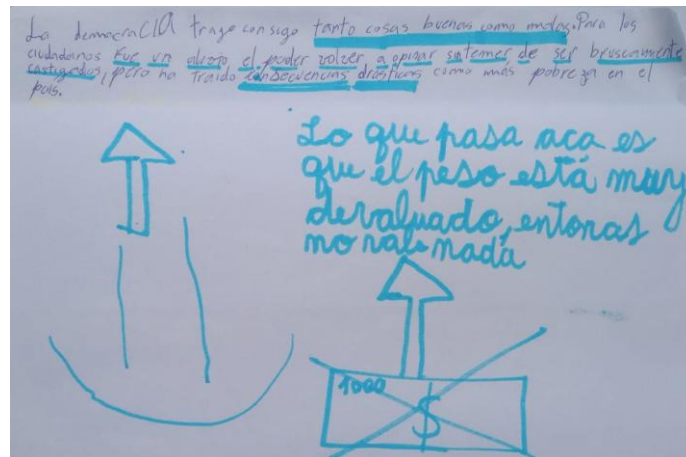 La democraCIA trajo consigo tanto cosas buenas como malas. Para los
ciudadanos fue un alivio el poder volver a opinar sin temer de ser bruscamente
castigados, pero ha traido consecuencias drásticas como más pobreza en el
país.
Lo que pasa aca es
que el peso está muy
devaluado, entonces
no vale nada
1000
$